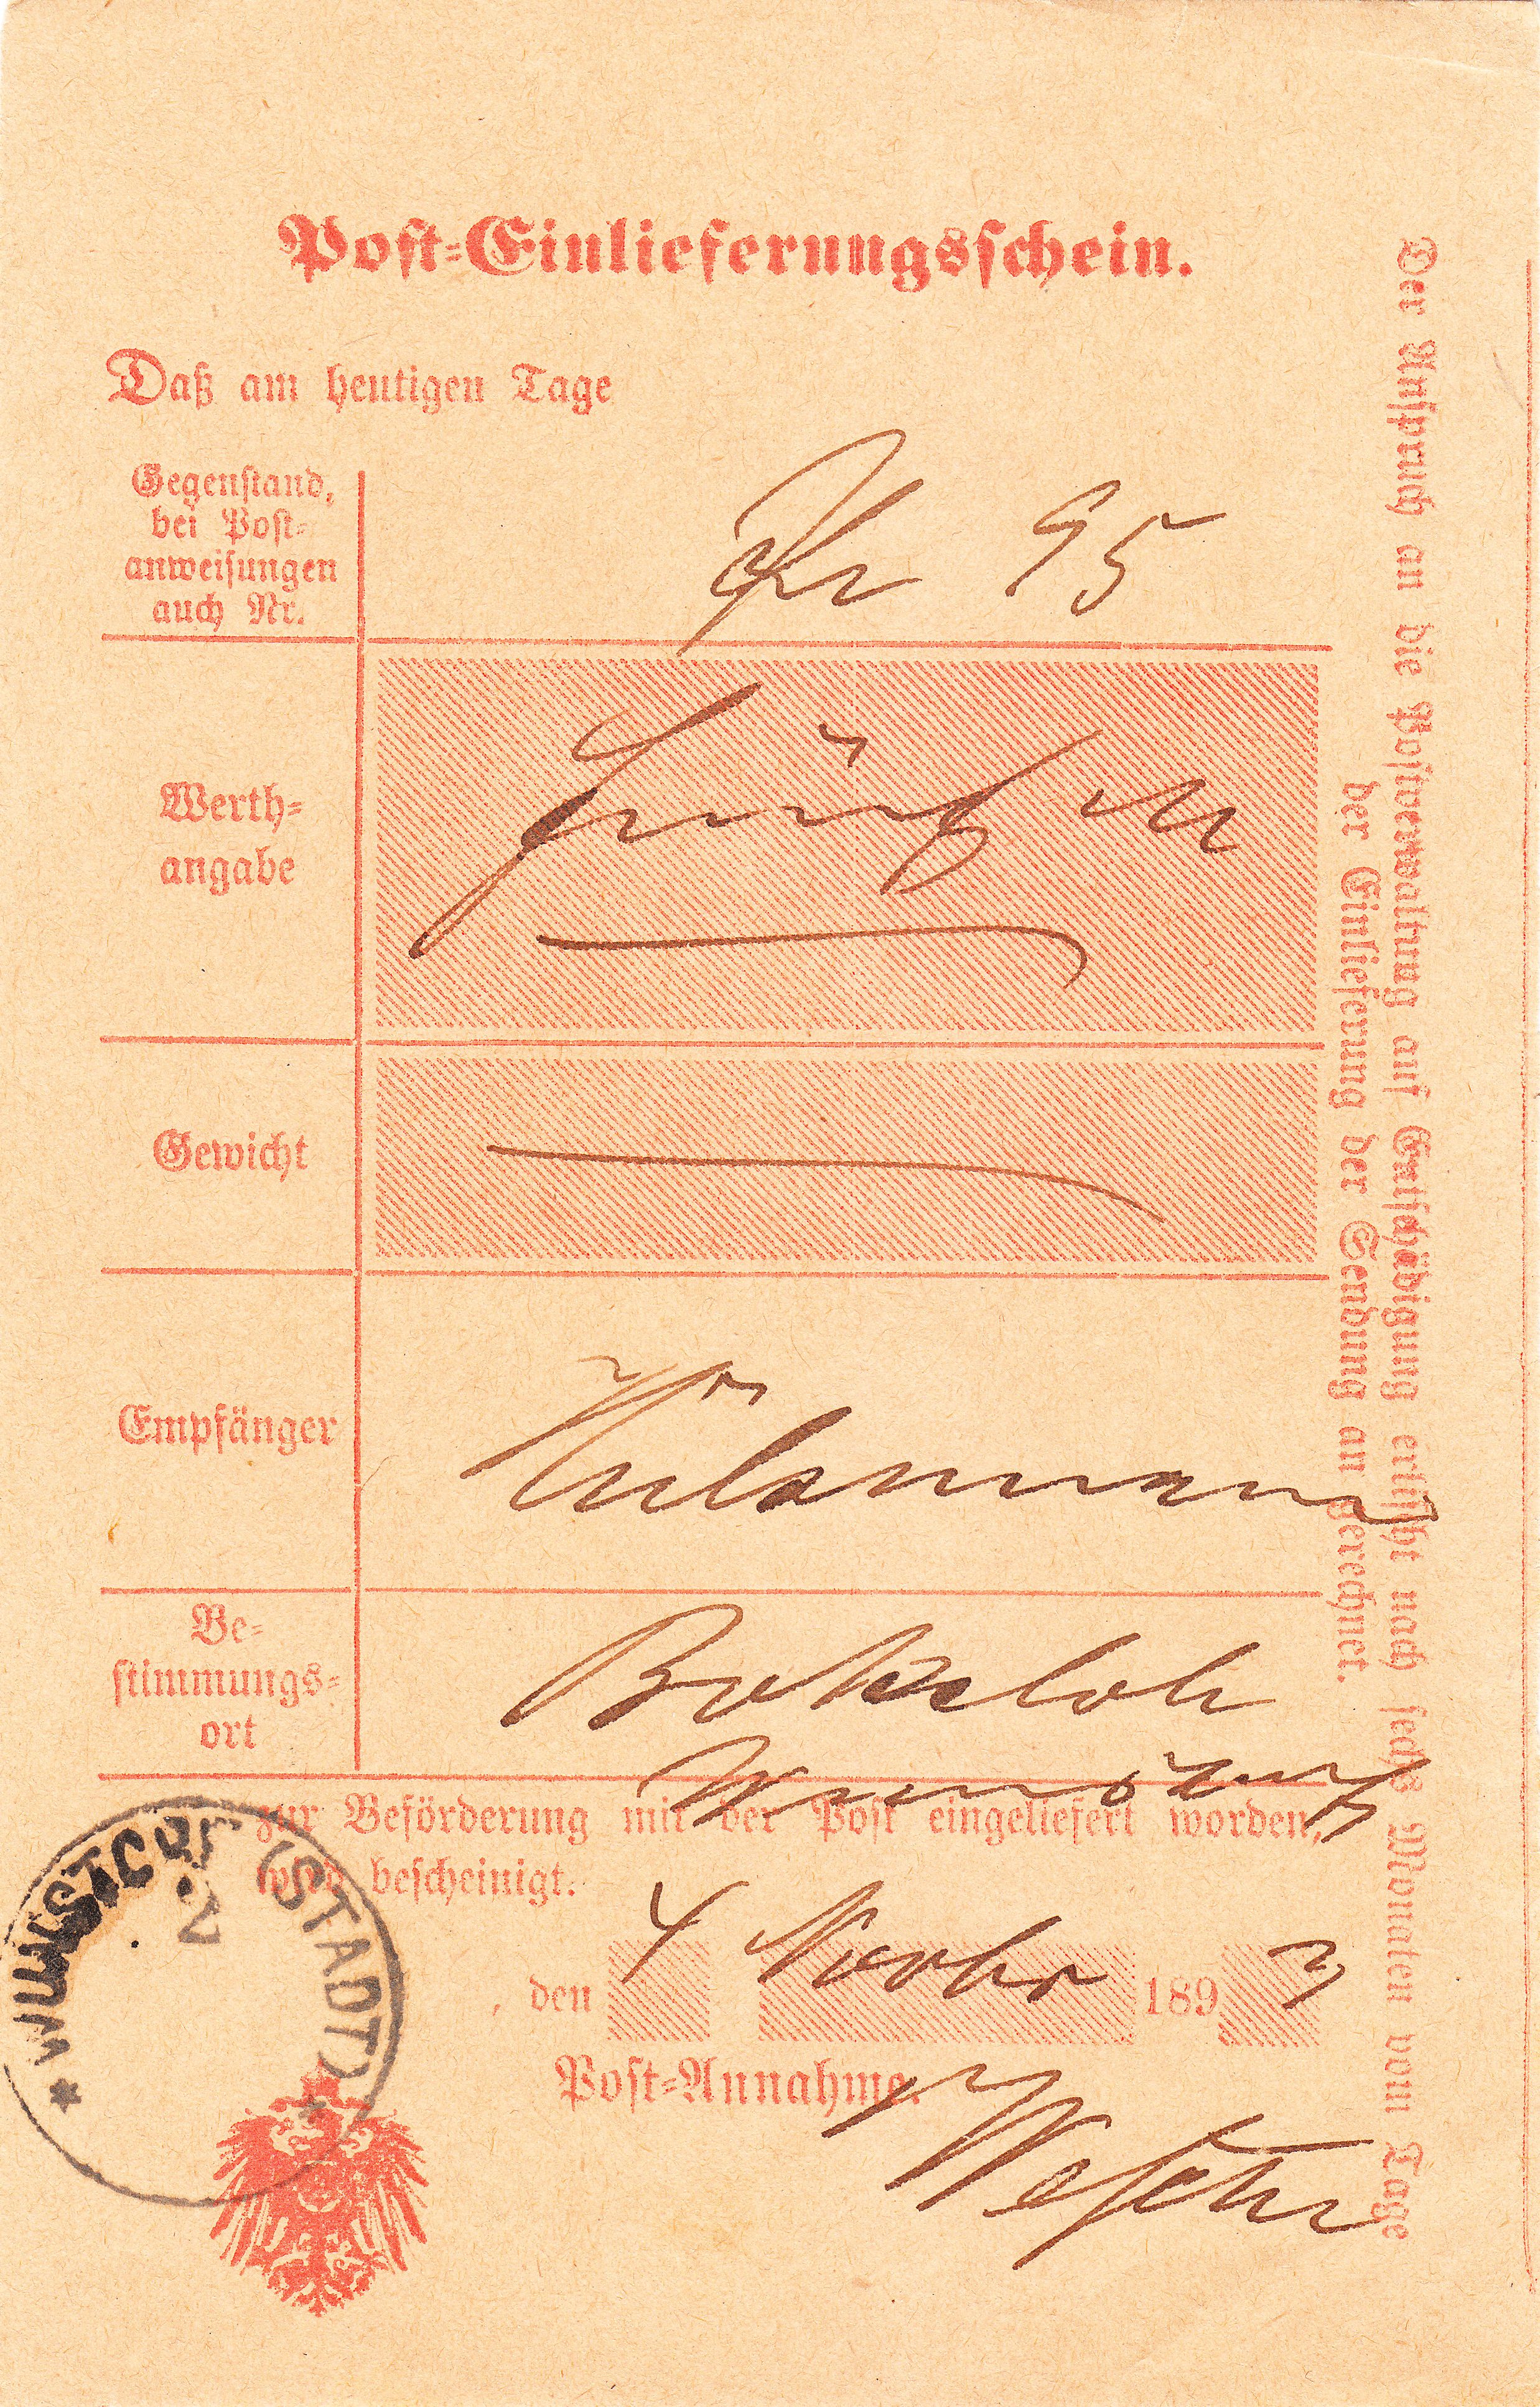 Post-Einlieferungsschein.
Daß am heutigen Tage
Gegenstand,
bei Post-
anweisungen
auch Nr.
95
Werth-
angabe
Gewicht
Empfänger
Be-
stimmungs-
ort
Bokeloh
Wunstorf
zur Beförderung mit der Post eingeliefert worden,
wird bescheinigt.
WUNSTORF (STADT)
, den 4 Novbr 189
Post-Annahme.
Der Anspruch an die Postverwaltung auf Entschädigung erlischt nach sechs Monaten vom Tage
der Einlieferung der Sendung an gerechnet.